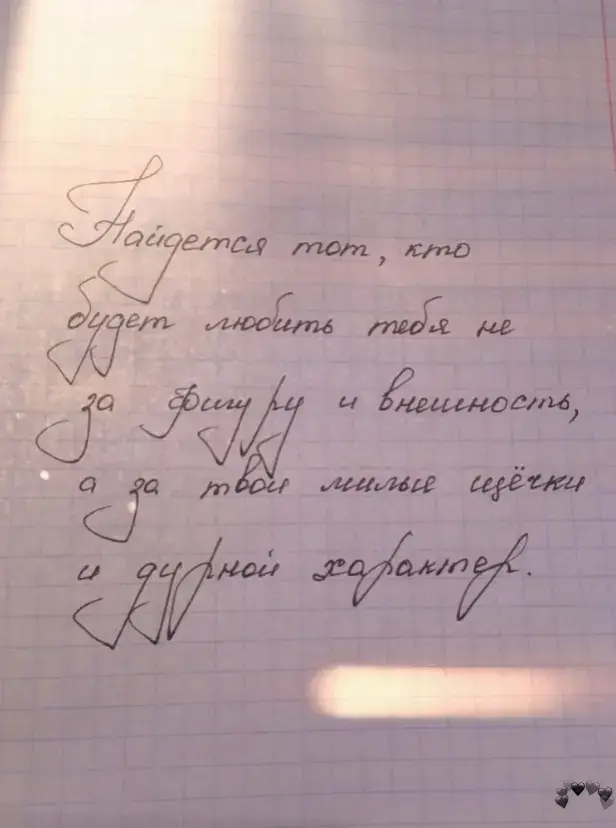 Найдется тот, кто
будет любить тебя не
за фигуру и внешность,
а за твои милые щёчки
и дурной характер.